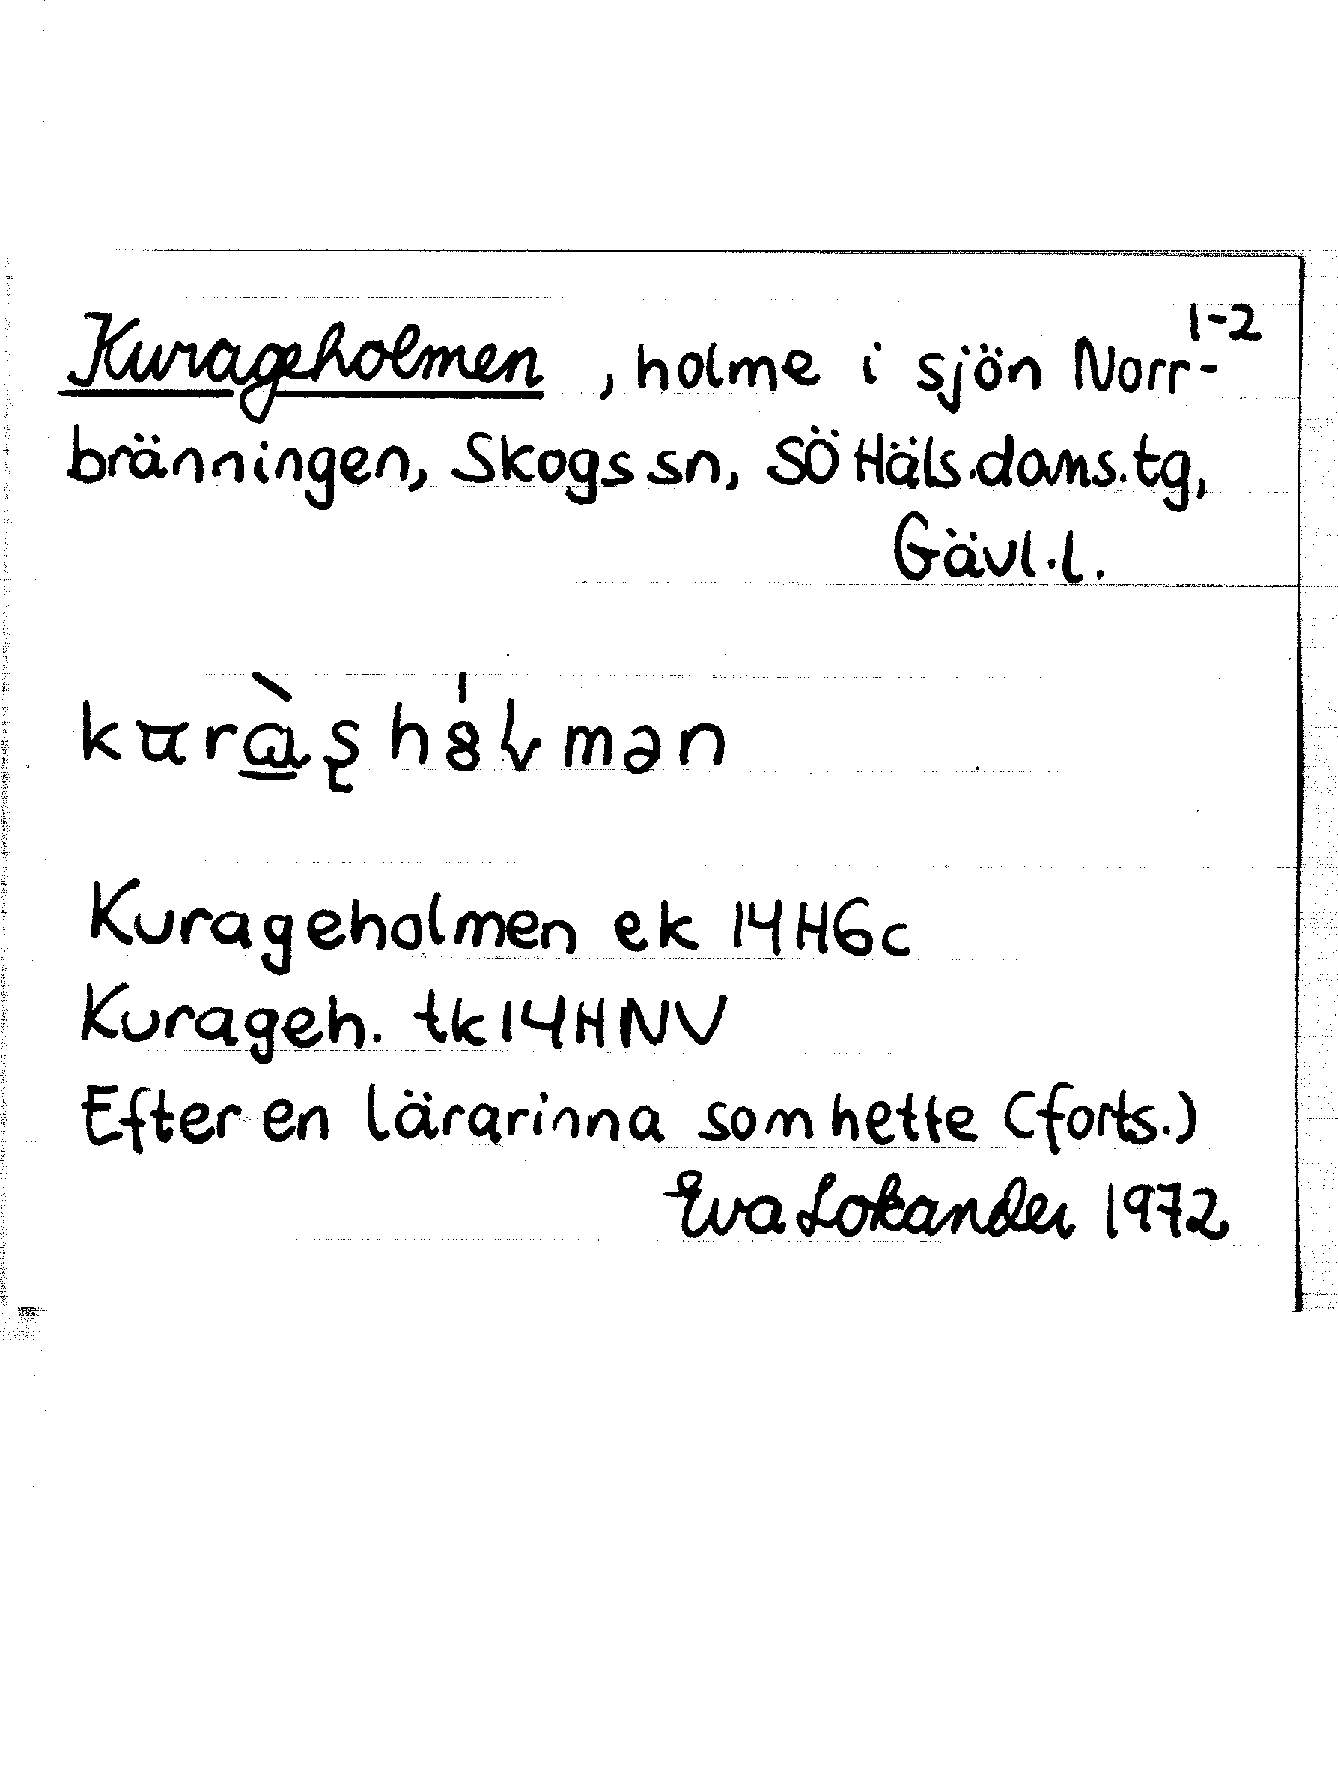 1-2
Kurageholmen, holme i sjön Norr-
bränningen, Skogs sn, SÖ Häls.doms.tg,
Gävl.l.
Kurageholmen ek 14H6c
Kurageh. tk 14HNV
Efter en lärarinna som hette (forts.)
Eva Lokander 1972